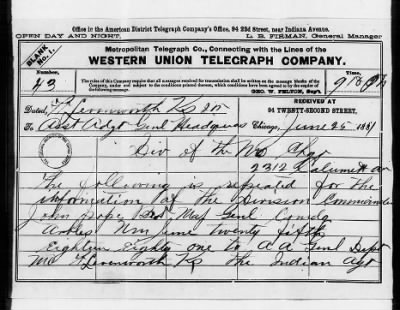 Office in the American District Telegraph Company's Office, 94 22d Street, near Indiana Avenue.
OPEN DAY AND NIGHT.
L. B. FIRMAN, General Manager
BLANK No. 1.
Metropolitan Telegraph Co., Connecting with the Lines of the
WESTERN UNION TELEGRAPH COMPANY.
Number,
43
Time,
The rules of this Company require that all messages received for transmission shall be written on the message blanks of the Company, under and subject to the conditions printed thereon, which conditions have been agreed to by the sender of the following message.
GEO. W. FELTON, Sec'y.
Dated, Ft Leavenworth Ks 25
RECEIVED AT
94 TWENTY-SECOND STREET,
To Asst Adgt Genl Headqurs
Chicago, June 25 1881
Div of the Mo Chgo
2312 Calumet av
The following is repeated for the
information of the Division Commander
John Pope Bvt Maj Genl Comdg
June twenty fifth
Eighteen Eighty one to A A Genl Dept
Mo Ft Leavenworth Ks the Indian Agt